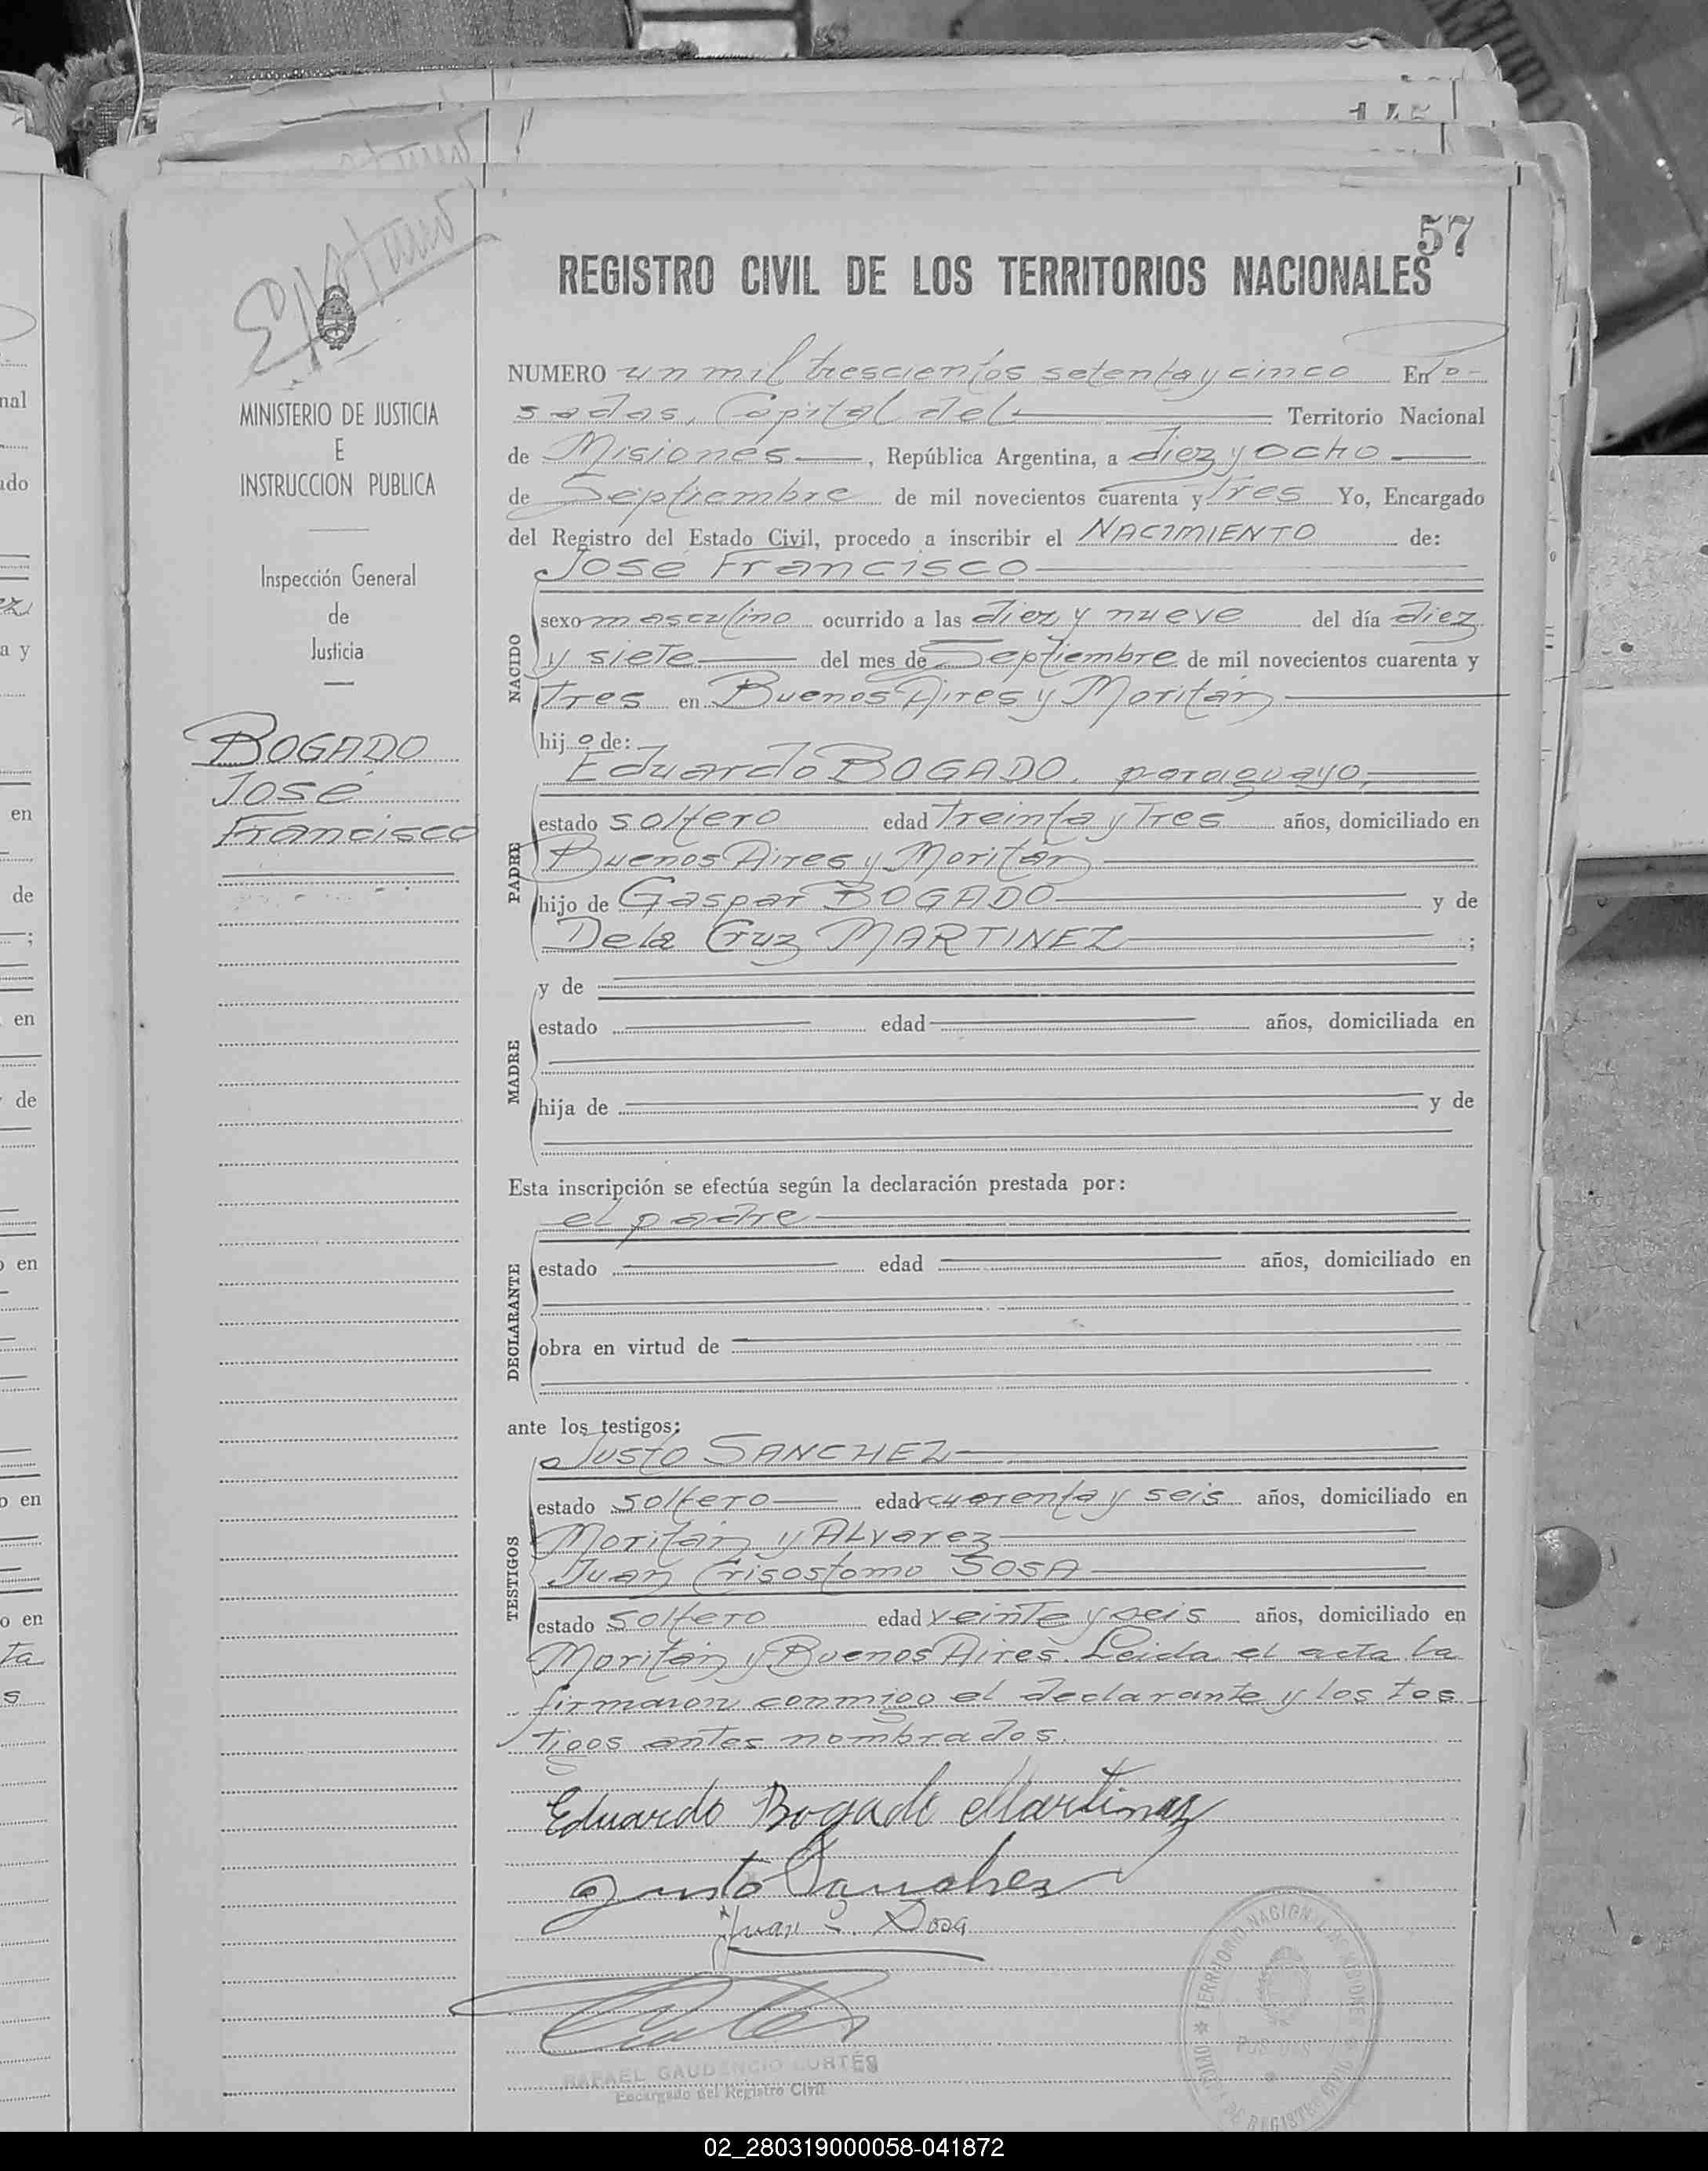 57
REGISTRO CIVIL DE LOS TERRITORIOS NACIONALES
MINISTERIO DE JUSTICIA
E
INSTRUCCION PUBLICA
Inspección General
de
Justicia
BOGADO
José
Francisco
NUMERO un mil trescientos setenta y cinco En Po-
sadas, Capital del Territorio Nacional
de Misiones, República Argentina, a diez y ocho
de Septiembre de mil novecientos cuarenta y tres Yo, Encargado
del Registro del Estado Civil, procedo a inscribir el NACIMIENTO de:
José Francisco
NACIDO
sexo masculino ocurrido a las diez y nueve del día diez
y siete del mes de Septiembre de mil novecientos cuarenta y
tres en Buenos Aires y Moritán
hijo de:
Eduardo BOGADO, paraguayo,
PADRE
estado soltero edad treinta y tres años, domiciliado en
Buenos Aires y Moritán
hijo de Gaspar BOGADO y de
De la Cruz MARTINEZ ;
MADRE
y de
estado edad años, domiciliada en
hija de y de
Esta inscripción se efectúa según la declaración prestada por:
el padre
DECLARANTE
estado edad años, domiciliado en
obra en virtud de
ante los testigos:
Justo SANCHEZ
TESTIGOS
estado soltero edad cuarenta y seis años, domiciliado en
Moritán y Alvarez
Juan Crisostomo SOSA
estado soltero edad veinte y seis años, domiciliado en
Moritán y Buenos Aires. Leida el acta la
firmaron conmigo el declarante y los tes
tigos antes nombrados.
Eduardo Bogado Martinez
Justo Sanchez
Juan C. Sosa
RAFAEL GAUDENCIO CORTÉS
Encargado del Registro Civil
02_280319000058-041872